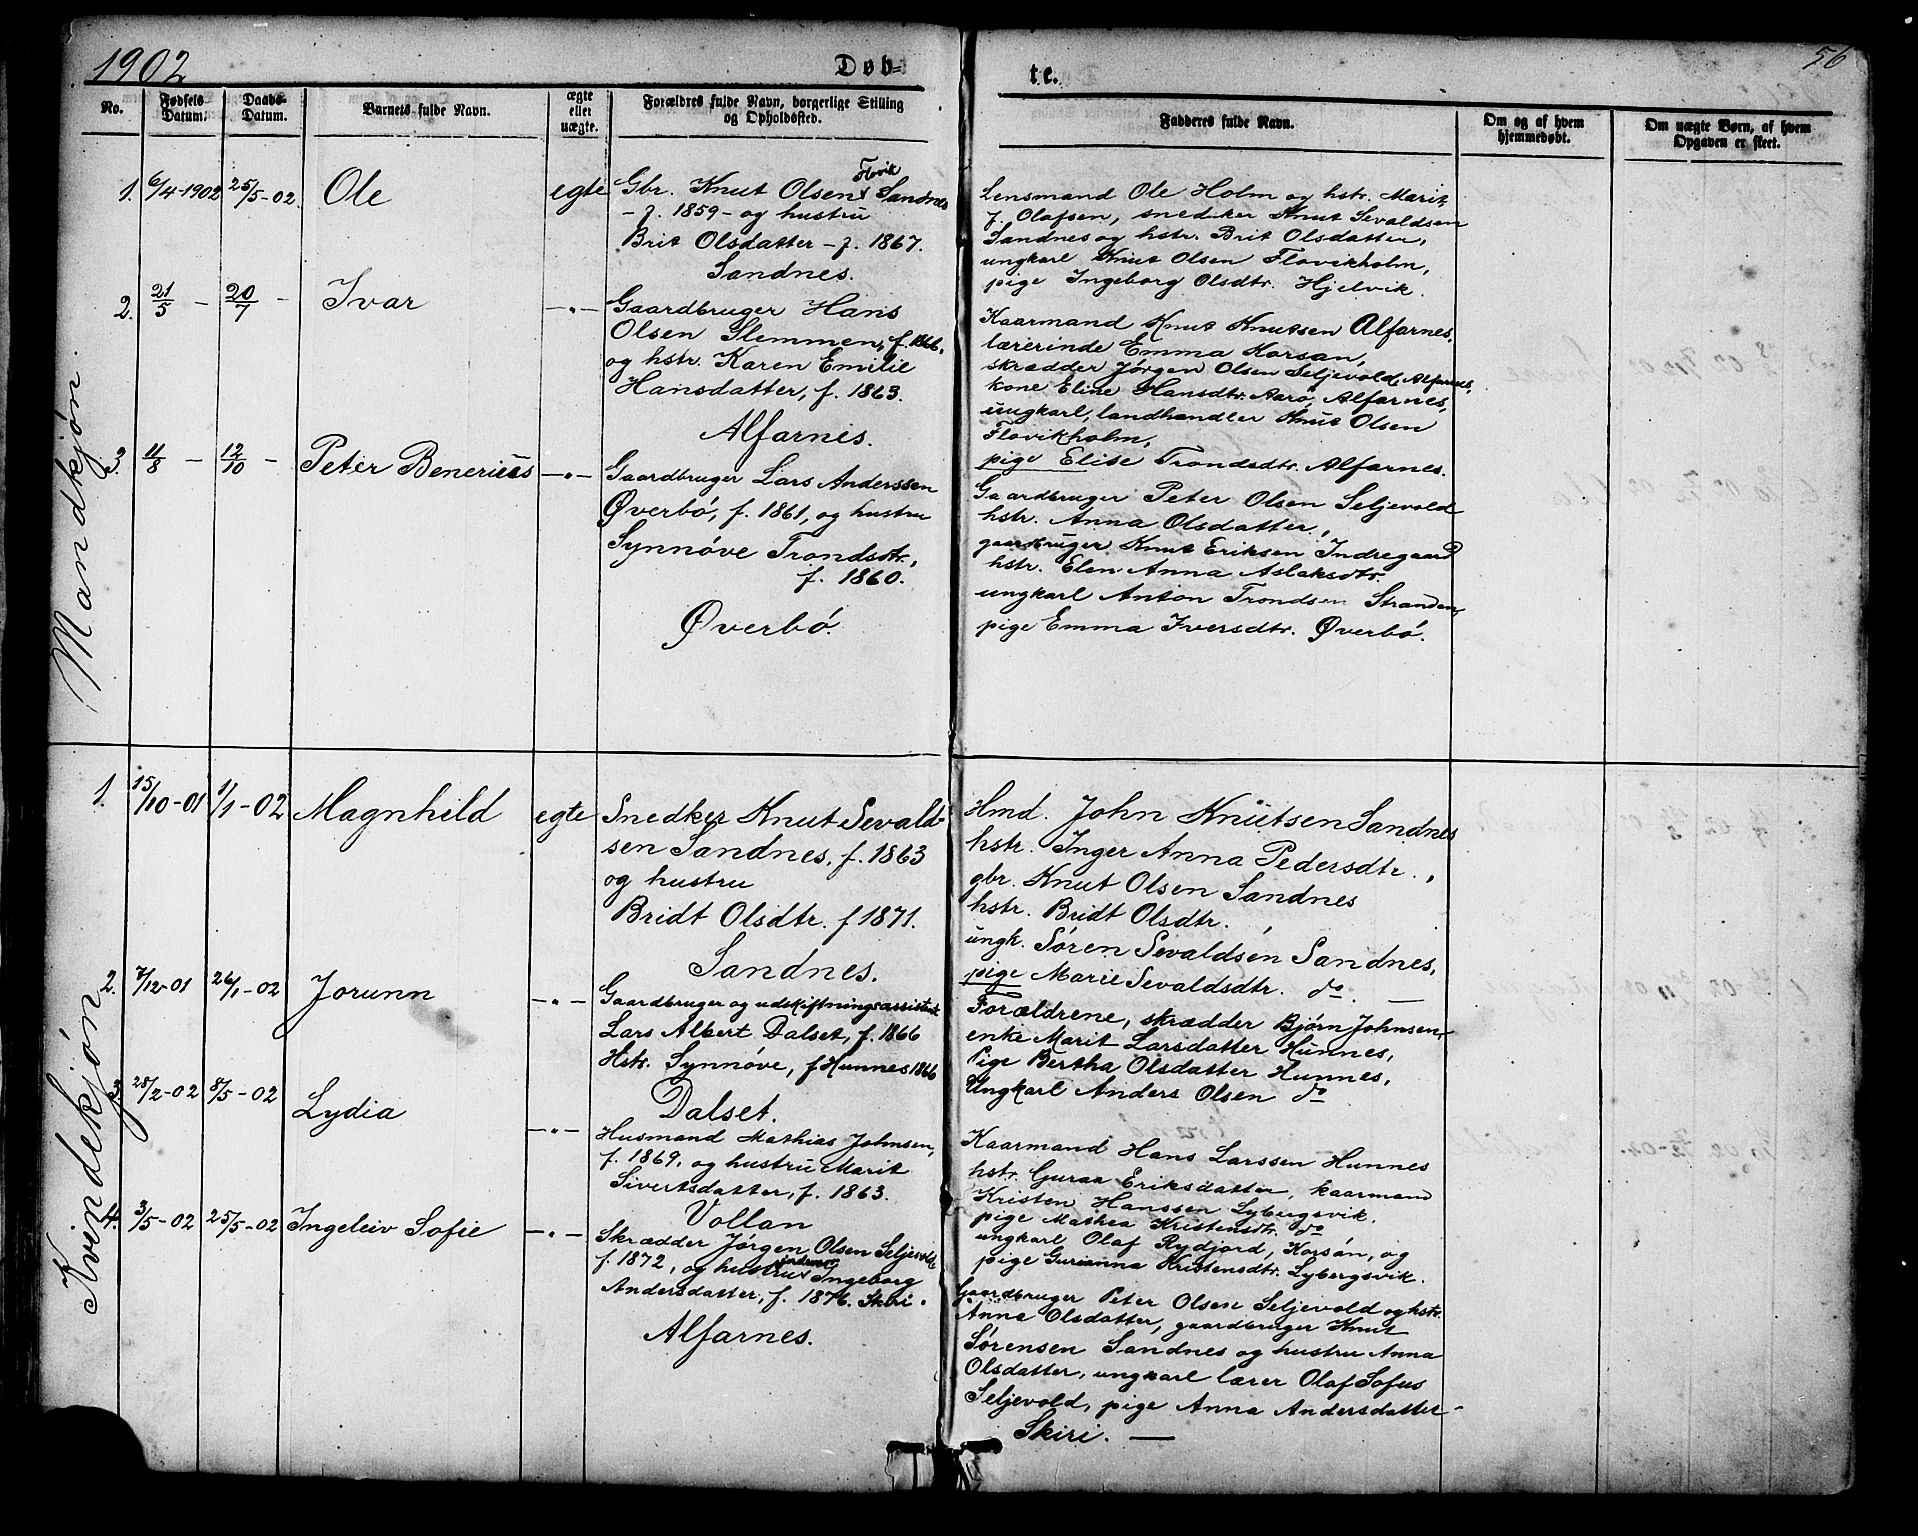 1902
Døb=
te.
56
No.
Fødsels Datum.
Daabs-Datum.
Barnets fulde Navn.
ægte eller uægte.
Forældres fulde Navn, borgerlige Stilling og Opholdssted.
Fadderes fulde Navn.
Om og af hvem hjemmedøbt.
Om uægte Børn, af hvem Opgaven er skeet.
Mandkjøn.
1. 6/4-1902 25/5-02. Ole egte
Flovik
Gbr. Knut Olsen x Sandnes
- f. 1859 - og hustru
Brit Olsdatter - f. 1867.
Sandnes.
Lensmand Ole Holm og hstr. Marit
f. Olafsen, snedker Knut Sevaldsen
Sandnes og hstr. Brit Olsdatter,
ungkarl Knut Olsen Flovikholm,
pige Ingeborg Olsdtr. Hjelvik.
2. 21/5 - 20/7 - Ivar -"-
Gaardbruger Hans
Olsen Slemmen, f. 1866,
og hstr. Karen Emilie
Hansdatter, f. 1863.
Alfarnes.
Kaarmand Knut Knutsen Alfarnes,
lærerinde Emma Korsan,
skrædder Jørgen Olsen Seljevold, Alfarnes,
kone Eline Hansdtr. Aarø, Alfarnes,
ungkarl, landhandler Knut Olsen
Flovikholm,
pige Elise Trondsdtr. Alfarnes.
3. 11/8 - 12/10 - Peter Benerius -"-
Gaardbruger Lars Anderssen
Øverbø, f. 1861, og hustru
Synnøve Trondsdtr.,
f. 1860.
Øverbø.
Gaardbruger Peter Olsen Seljevold
hstr. Anna Olsdatter,
gaardbruger Knut Eriksen Indregaard
hstr. Elen Anna Aslaksdtr.
ungkarl Anton Trondsen Stranden,
pige Emma Iversdtr. Øverbø.
Kvindekjøn.
1. 15/10-01 1/1-02 Magnhild egte
Snedker Knut Sevald-
sen Sandnes, f. 1863
og hustru
Bridt Olsdtr. f 1871.
Sandnes.
Hmd. John Knutsen Sandnes
hstr. Inger Anna Pedersdtr.,
gbr. Knut Olsen Sandnes
hstr. Bridt Olsdtr.,
ungk. Søren Sevaldsen Sandnes,
pige Marie Sevaldsdtr. do. —
2. 7/12-01 26/1-02 Jorunn -"-
Gaardbruger og udskiftningsassistent
Lars Albert Dalset, f. 1866
Hstr. Synnøve, f Hunnes 1866
Dalset.
Forældrene, skrædder Bjørn Johnsen,
enke Marit Larsdatter Hunnes,
Pige Bertha Olsdatter Hunnes,
Ungkarl Anders Olsen do
3. 28/2-02 8/5-02 Lydia -"-
Husmand Mathias Johnsen,
f. 1869, og hustru Marit
Sivertsdatter, f. 1863.
Vollan
Kaarmand Hans Larssen Hunnes
hstr. Guraa Eriksdatter, kaarmand
Kristen Hanssen Lybergsvik.
pige Mathea Kristensdtr. do
ungkarl Olaf Rydjord, Korsøn, og
pige Gurianna Kristensdtr. Lybergsvik.
4. 3/5-02 25/5-02 Ingeleiv Sofie -"-
Skrædder Jørgen Olsen Seljevold
f. 1872, og hustru x Ingeborg
Andersdatter, f. 1876. Skiri.
Alfarnes.
Gaardbruger Peter Olsen Seljevold og hstr.
Anna Olsdatter, gaardbruger Knut
Sørensen Sandnes og hustru Anna
Olsdatter, ungkarl lærer Olaf Sofus
Seljevold, pige Anna Andersdatter-
Skiri. —